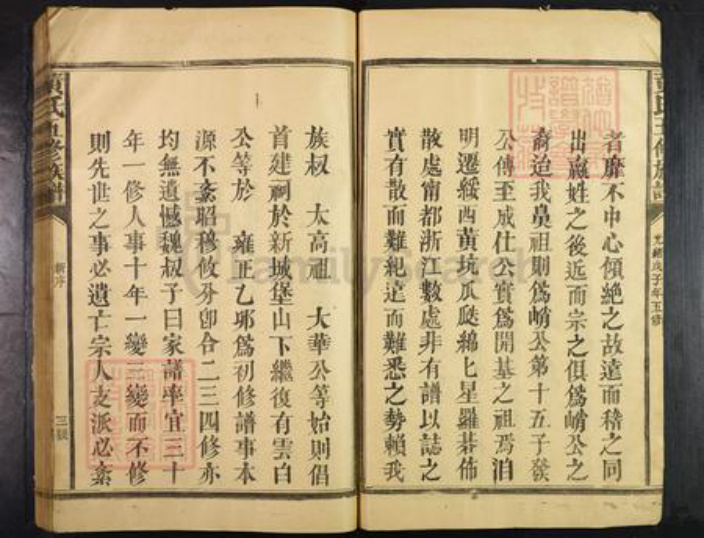 黃氏五修族譜
光緒戊子年五修
者靡不中心傾絕之故遠而稽之同
出嬴姓之後近而宗之俱爲峭公之
裔迨我鼻祖則爲峭公第十五子發
公傳至成仕公實爲開基之祖焉洎
明遷綏西黃坑瓜瓞綿匕星羅碁佈
散處甯都浙江數處非有譜以誌之
實有散而難紀遠而難悉之勢賴我
族叔 太高祖 大華公等始則倡
首建祠於新城堡山下繼復有雲白
公等於 雍正乙邜爲初修譜事本
源不紊昭穆攸分卽合二三四修亦
均無遺憾魏叔子曰家譜率宜三十
年一修人事十年一變三變而不修
則先世之事必遺亡宗人支派必紊
黃氏五修族譜
新序
三號
FamilySearch